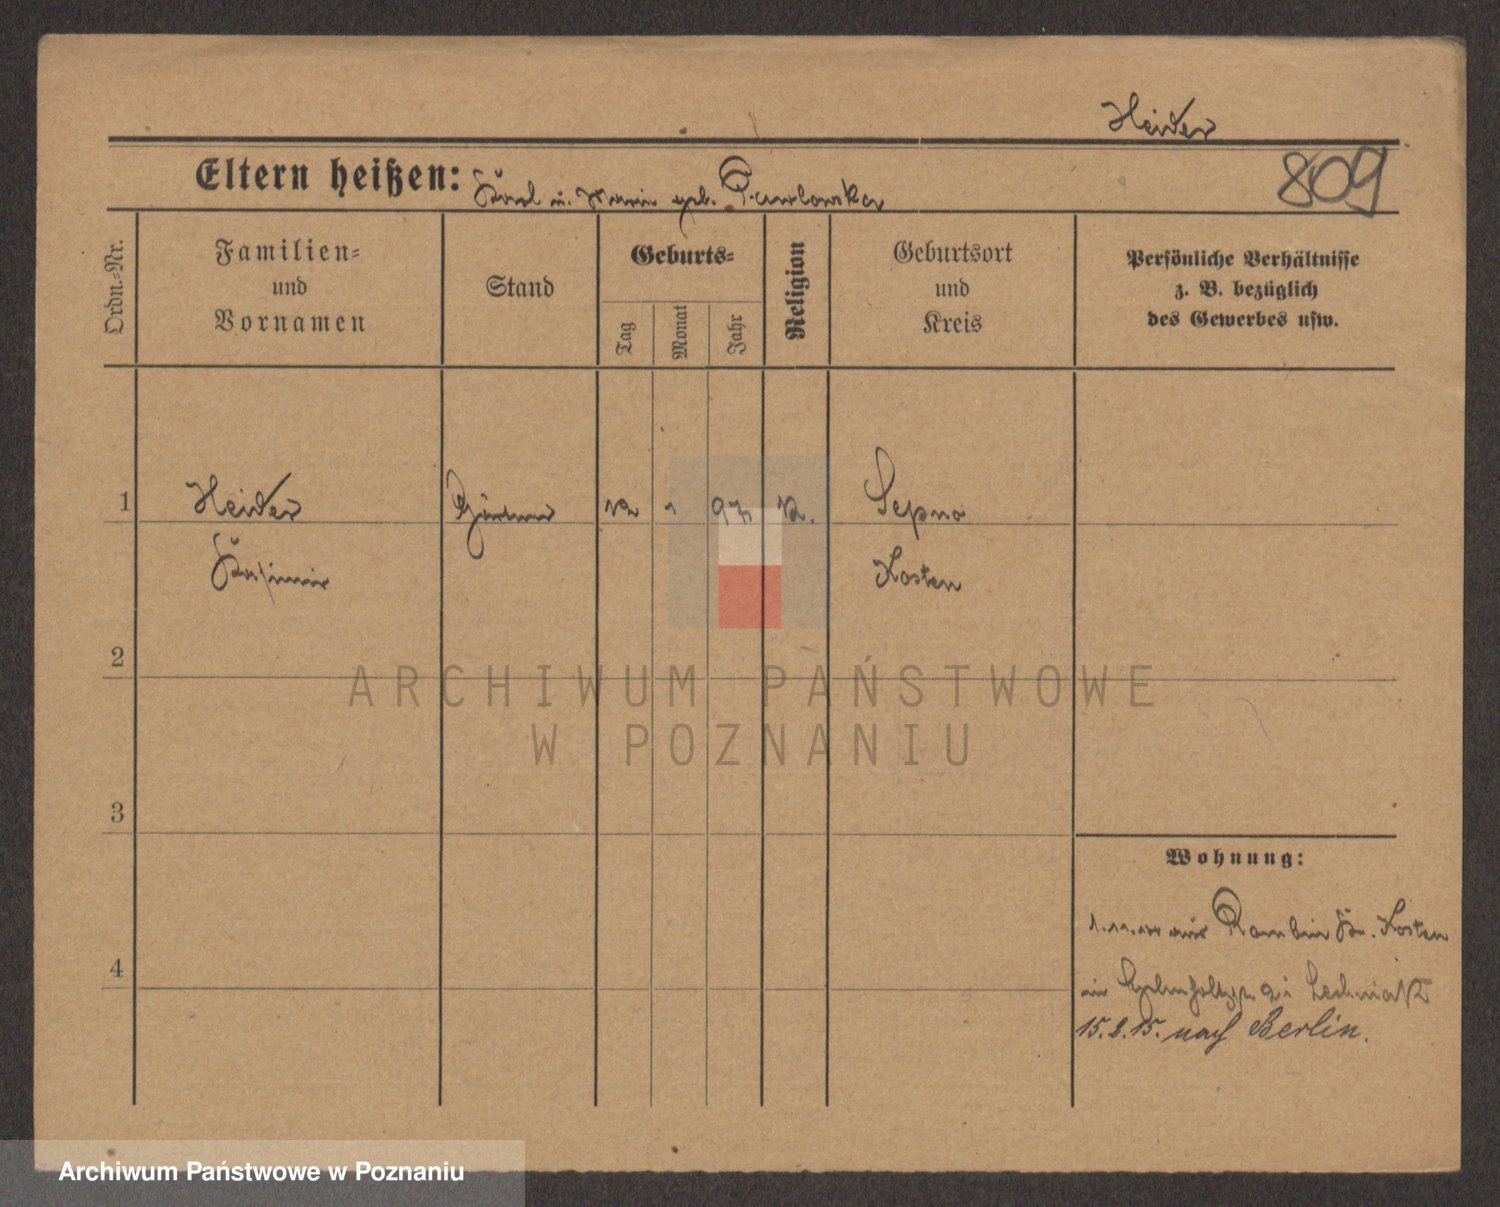 Heider
809
Eltern heißen: Karl u. Marie geb. Pawlowska
Ordn.-Nr.
Familien-
und
Vornamen
Stand
Geburts-
Tag
Monat
Jahr
Religion
Geburtsort
und
Kreis
Persönliche Verhältnisse
z. B. bezüglich
des Gewerbes usw.
1
Heider
Kasimir
Gärtner
12
1
97
K.
Sepno
Kosten
2
ARCHIWUM PAŃSTWOWE
W POZNANIU
3
Wohnung:
1.11. aus Kr. Kosten
4
in
15.2.15. nach Berlin.
Archiwum Państwowe w Poznaniu